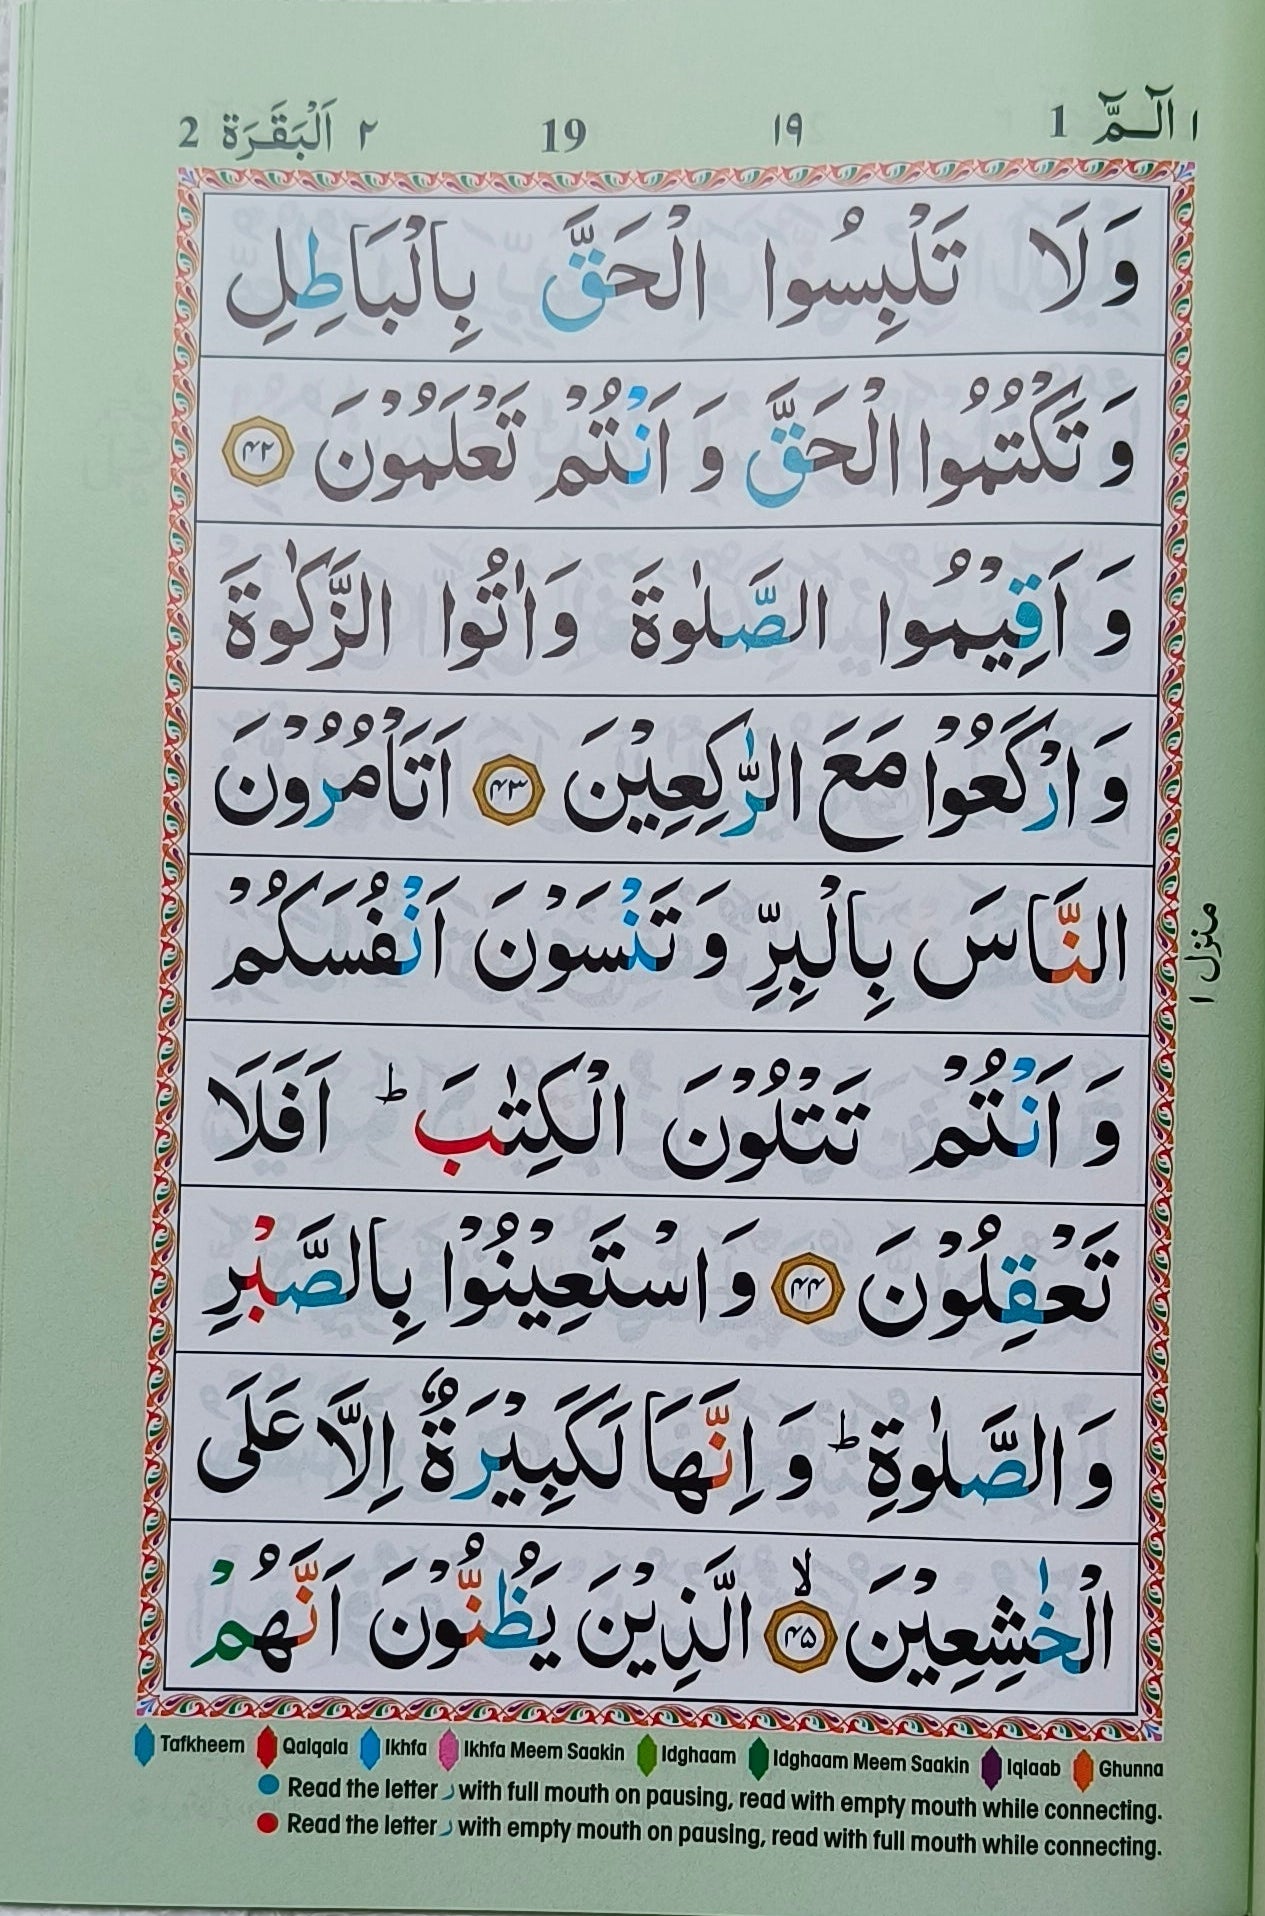 2 اَلْبَقَرَة ٢ 19 ١٩ 1 الٓمّٓ ١
وَلَا تَلْبِسُوا الْحَقَّ بِالْبَاطِلِ
وَ تَكْتُمُوا الْحَقَّ وَ اَنْتُمْ تَعْلَمُوْنَ ۴۲
وَ اَقِيْمُوا الصَّلٰوةَ وَاٰتُوا الزَّكٰوةَ
وَ ارْكَعُوْا مَعَ الرّٰكِعِيْنَ ۴۳ اَتَاْمُرُوْنَ
النَّاسَ بِالْبِرِّ وَ تَنْسَوْنَ اَنْفُسَكُمْ
وَ اَنْتُمْ تَتْلُوْنَ الْكِتٰبَ ؕ اَفَلَا
تَعْقِلُوْنَ ۴۴ وَ اسْتَعِيْنُوْا بِالصَّبْرِ
وَ الصَّلٰوةِ ؕ وَ اِنَّهَا لَكَبِيْرَةٌ اِلَّا عَلَى
الْخٰشِعِيْنَ ۙ ۴۵ الَّذِيْنَ يَظُنُّوْنَ اَنَّهُمْ
منزل ١
Tafkheem Qalqala Ikhfa Ikhfa Meem Saakin Idghaam Idghaam Meem Saakin Iqlaab Ghunna
Read the letter ر with full mouth on pausing, read with empty mouth while connecting.
Read the letter ر with empty mouth on pausing, read with full mouth while connecting.